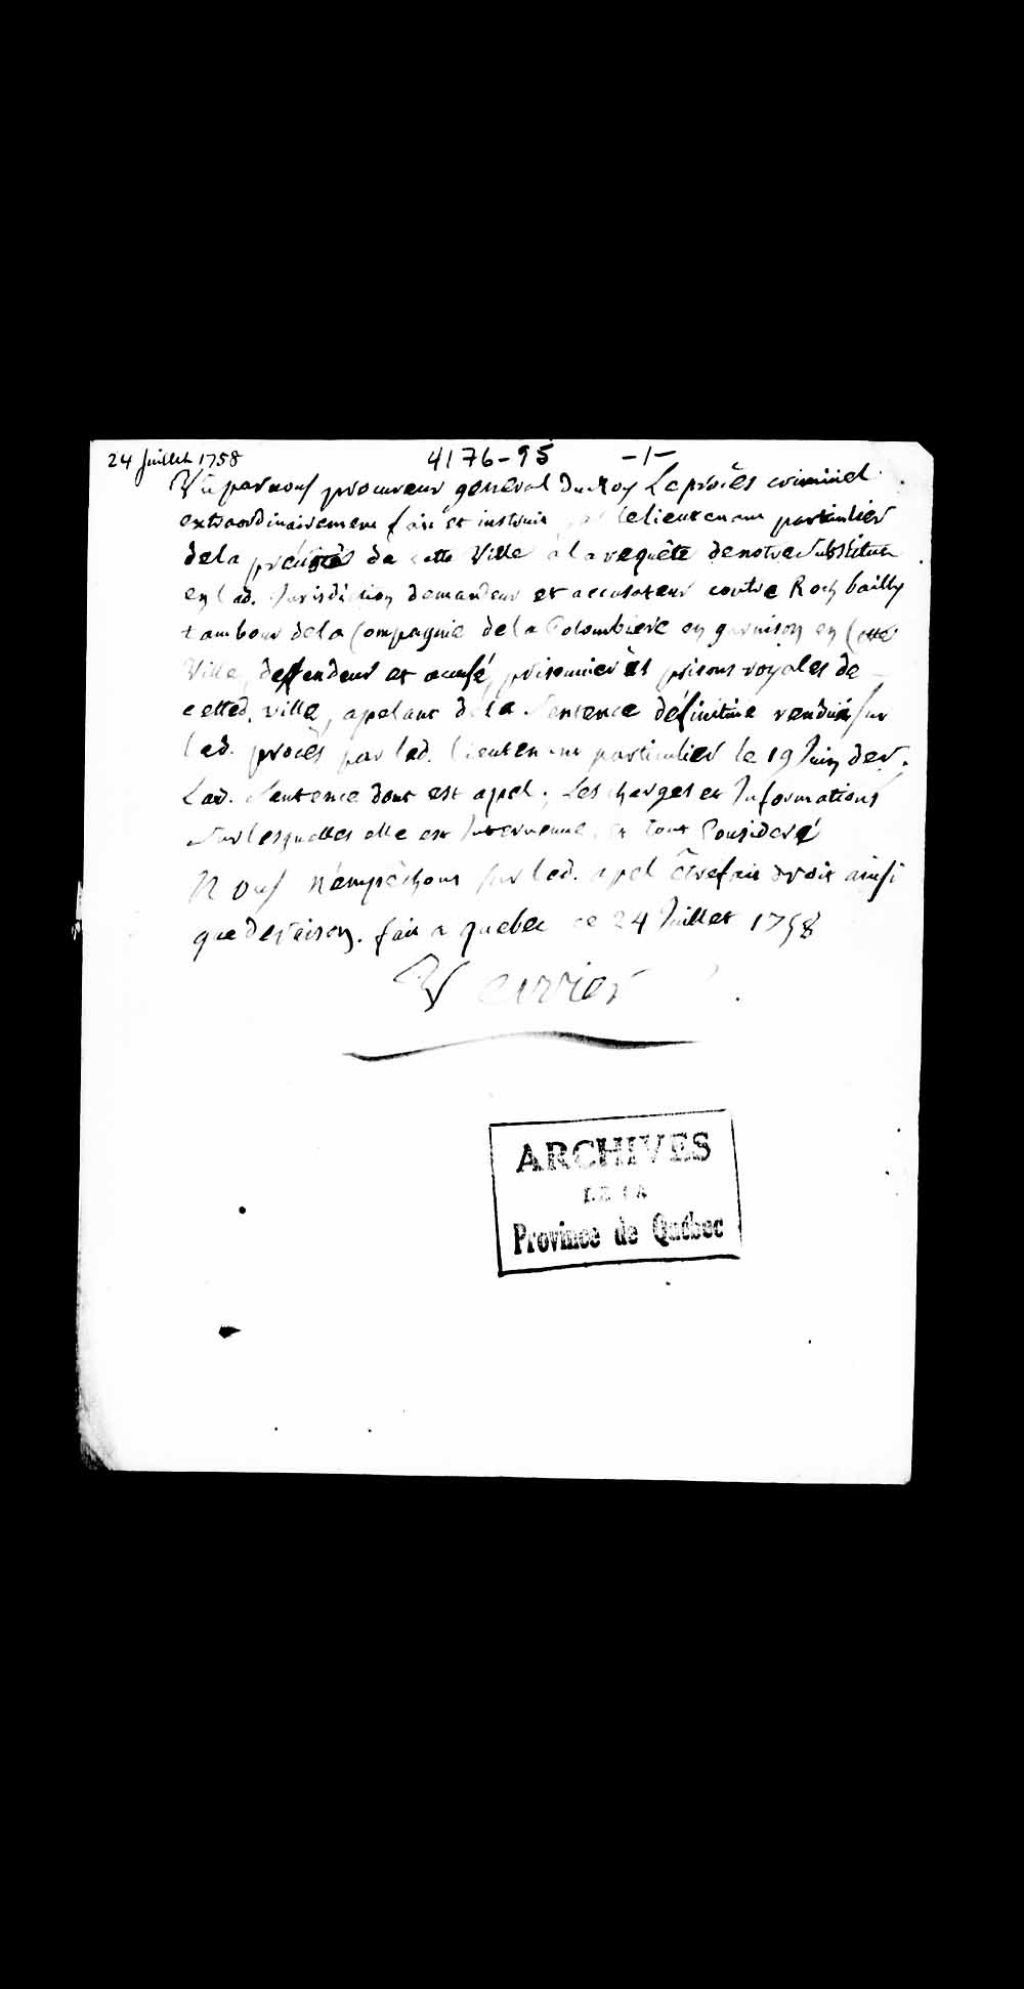 24 Juillet 1758 4176-95 -1-
Vû par nous procureur général Du Roy Le procès criminel
extraordinairement fait et instruit par le lieutenant particulier
de la prévôté de cette Ville à la requête de notre Substitut
en lad. Jurisdiction demandeur et accusateur contre Roch bailly
tambour de la Compagnie de la Colombiere en garnison en Cette
Ville, deffendeur et accusé, prisonnier ès prisons royales de
cetted. ville, apelant de la Sentence définitive rendüe sur
led. procès par led. lieutenant particulier le 19 Juin der.
Lad. Sentence dont est apel; Les charges et Informations
Sur lesquelles elle est Intervenue, Et tout Consideré
Nous N'empêchons sur led. apel être fait droit ainsi
que de raison. fait a quebec ce 24 Juillet 1758
Verrier
ARCHIVES
DE LA
Province de Québec